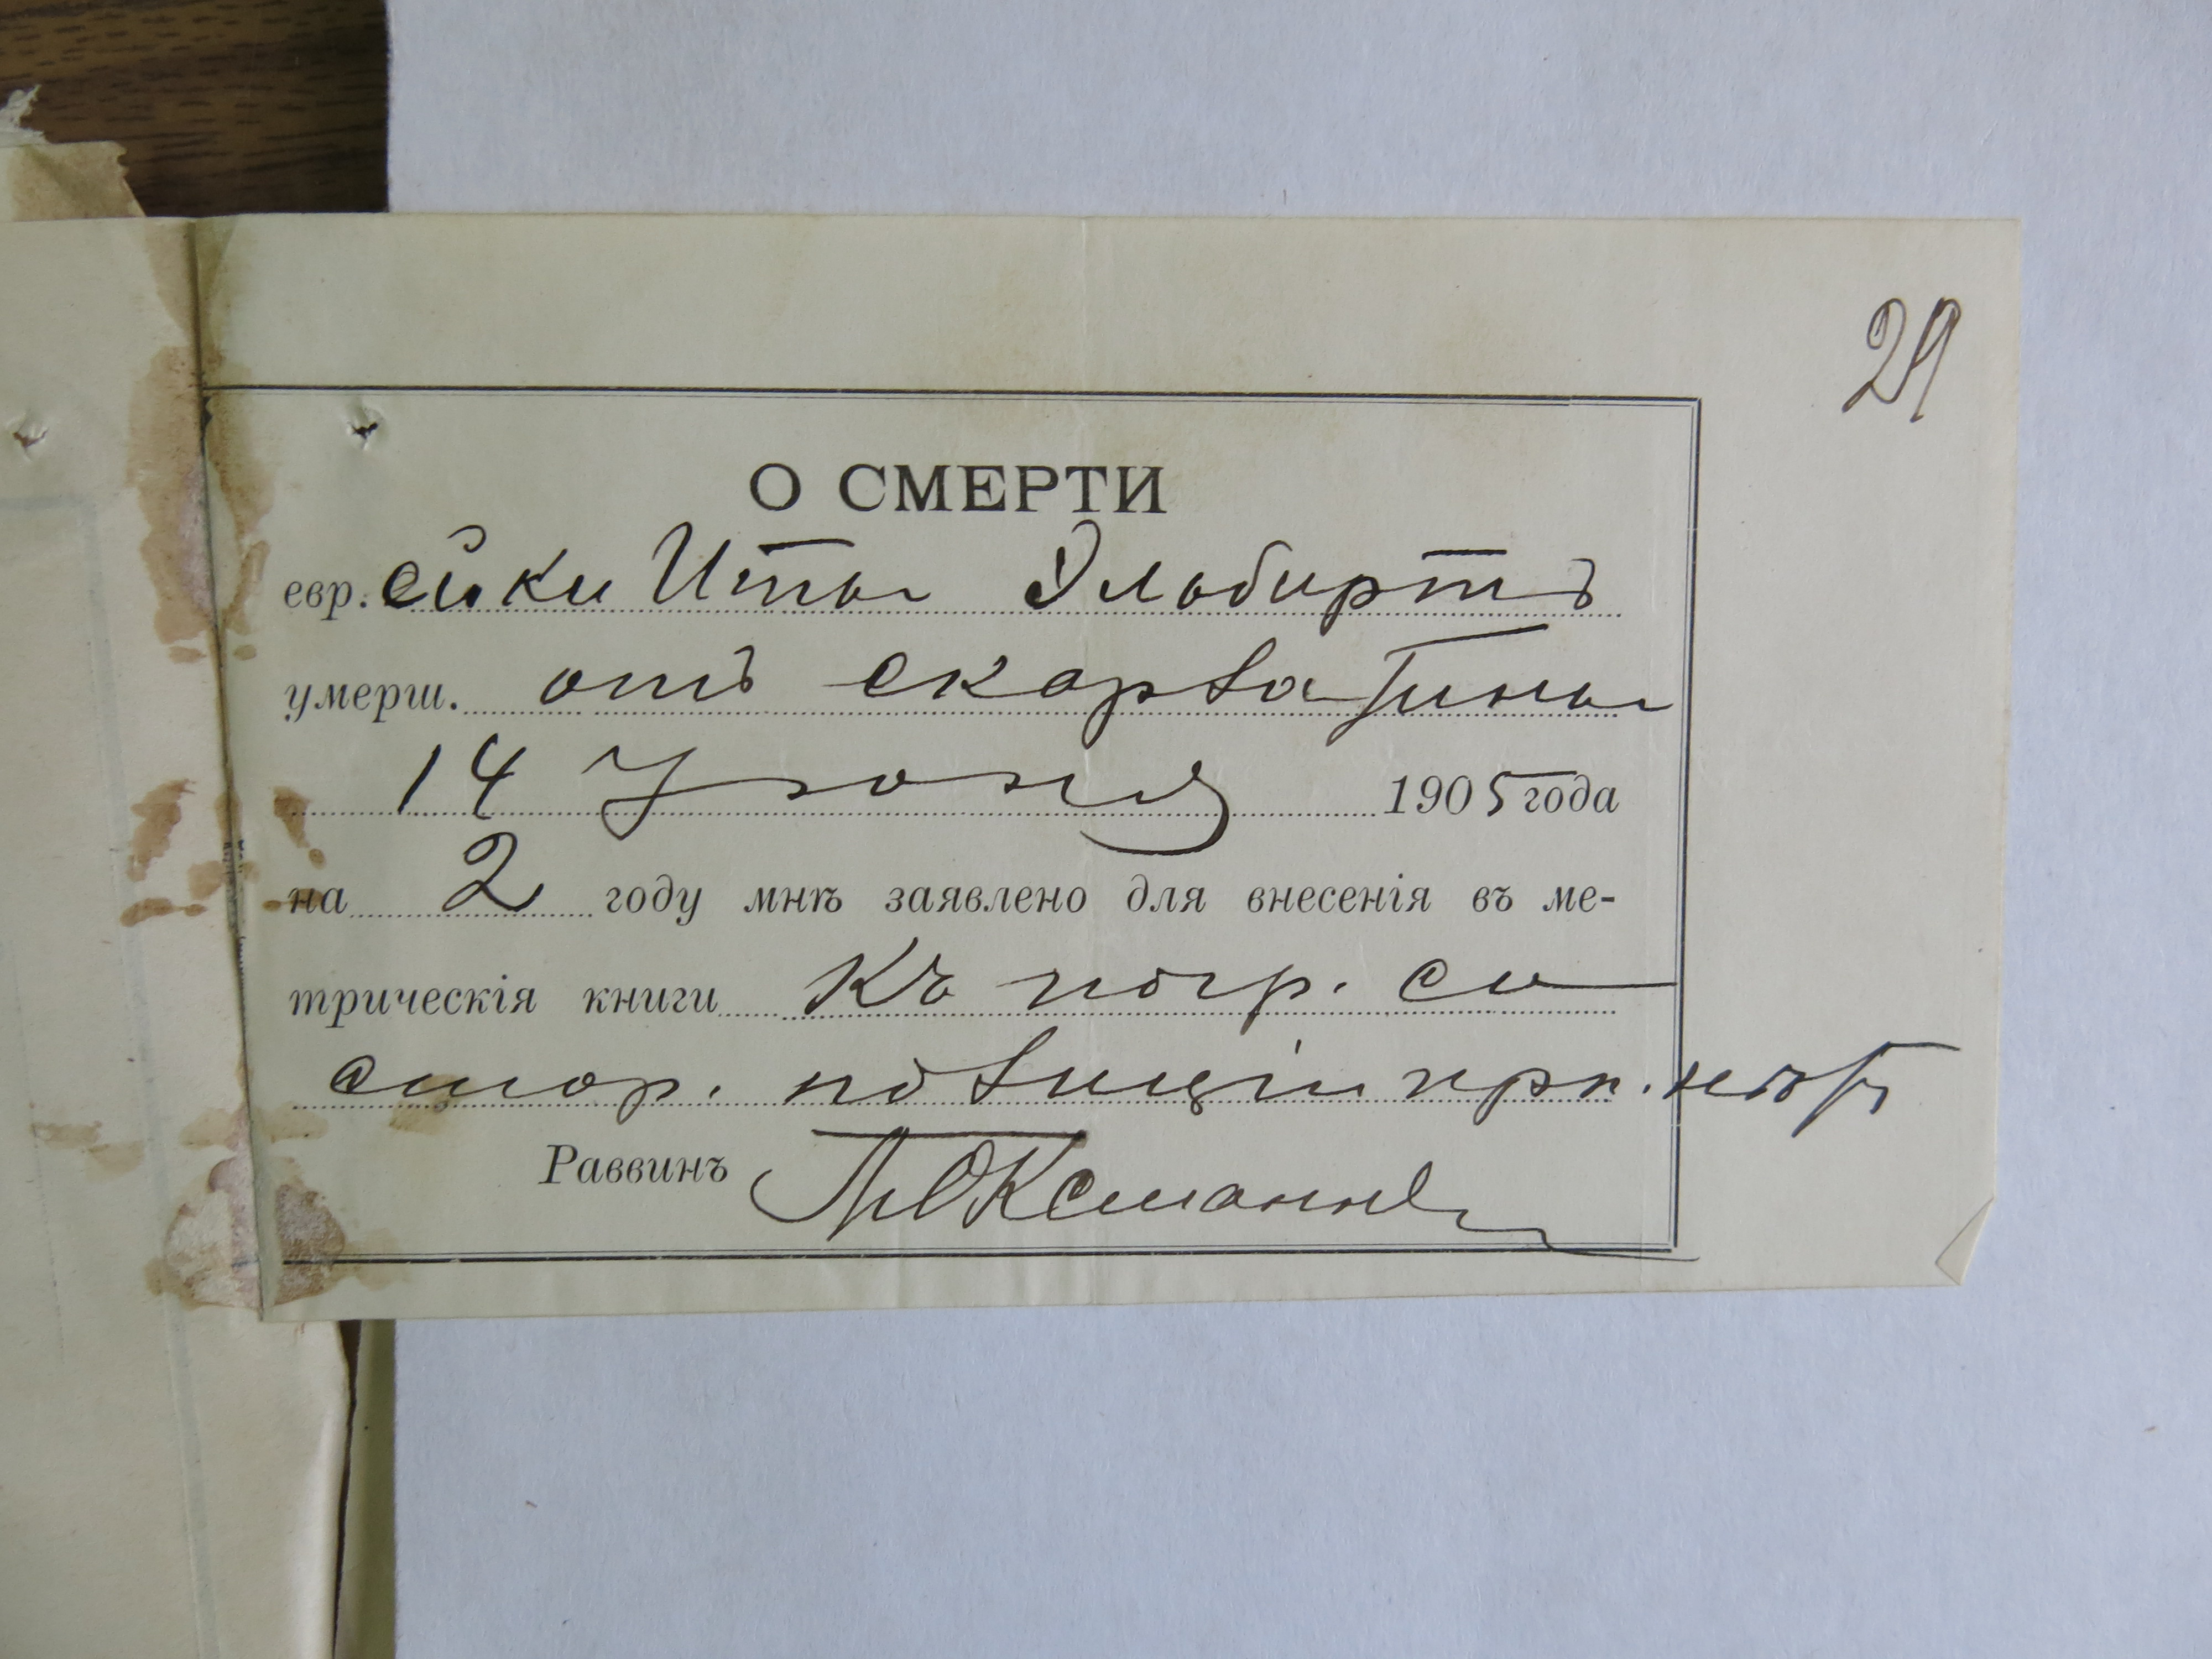 29
О СМЕРТИ
евр. ейки Иты Эльбиртъ
умерш. отъ скарлатины
14 Іюня 1905 года
на 2 году мнѣ заявлено для внесенія въ ме-
трическія книги Къ погр. со
стор. полиціи прп. нѣт
Раввинъ Оксманъ